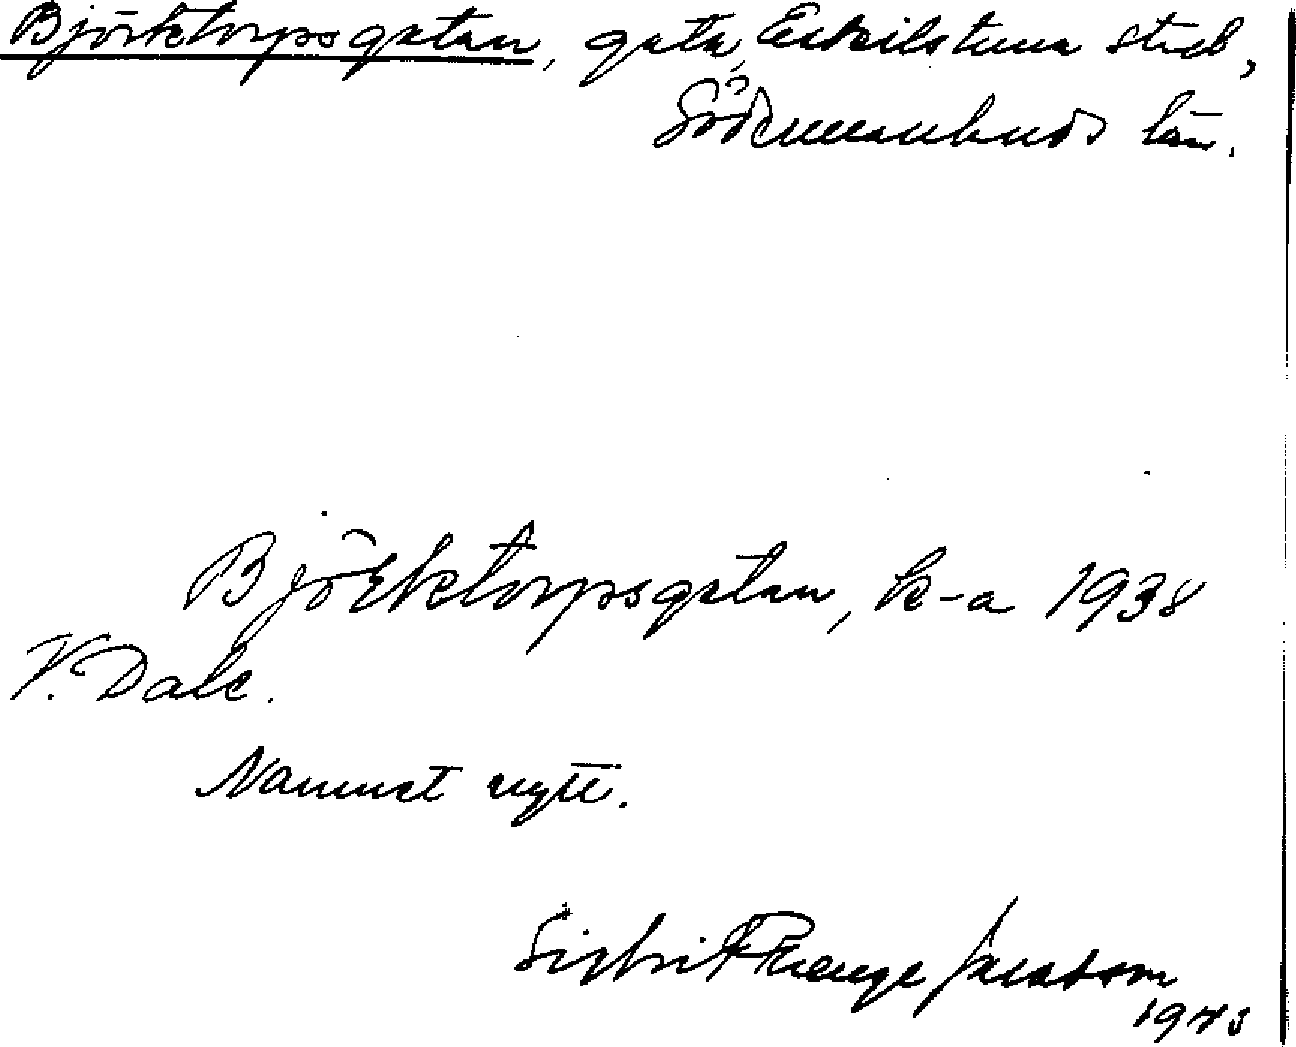 Björktorpsgatan, gata, Eskilstuna stad,
Södermanlands län.
Björktorpsgatan, k-a 1938
V. Dale.
Namnet nytt.
Sigbrit Plænge Jacobson